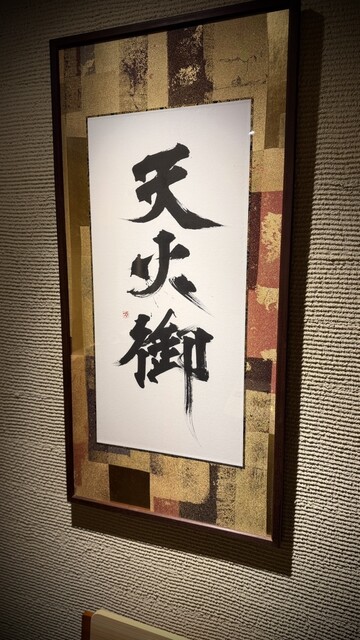 天火御